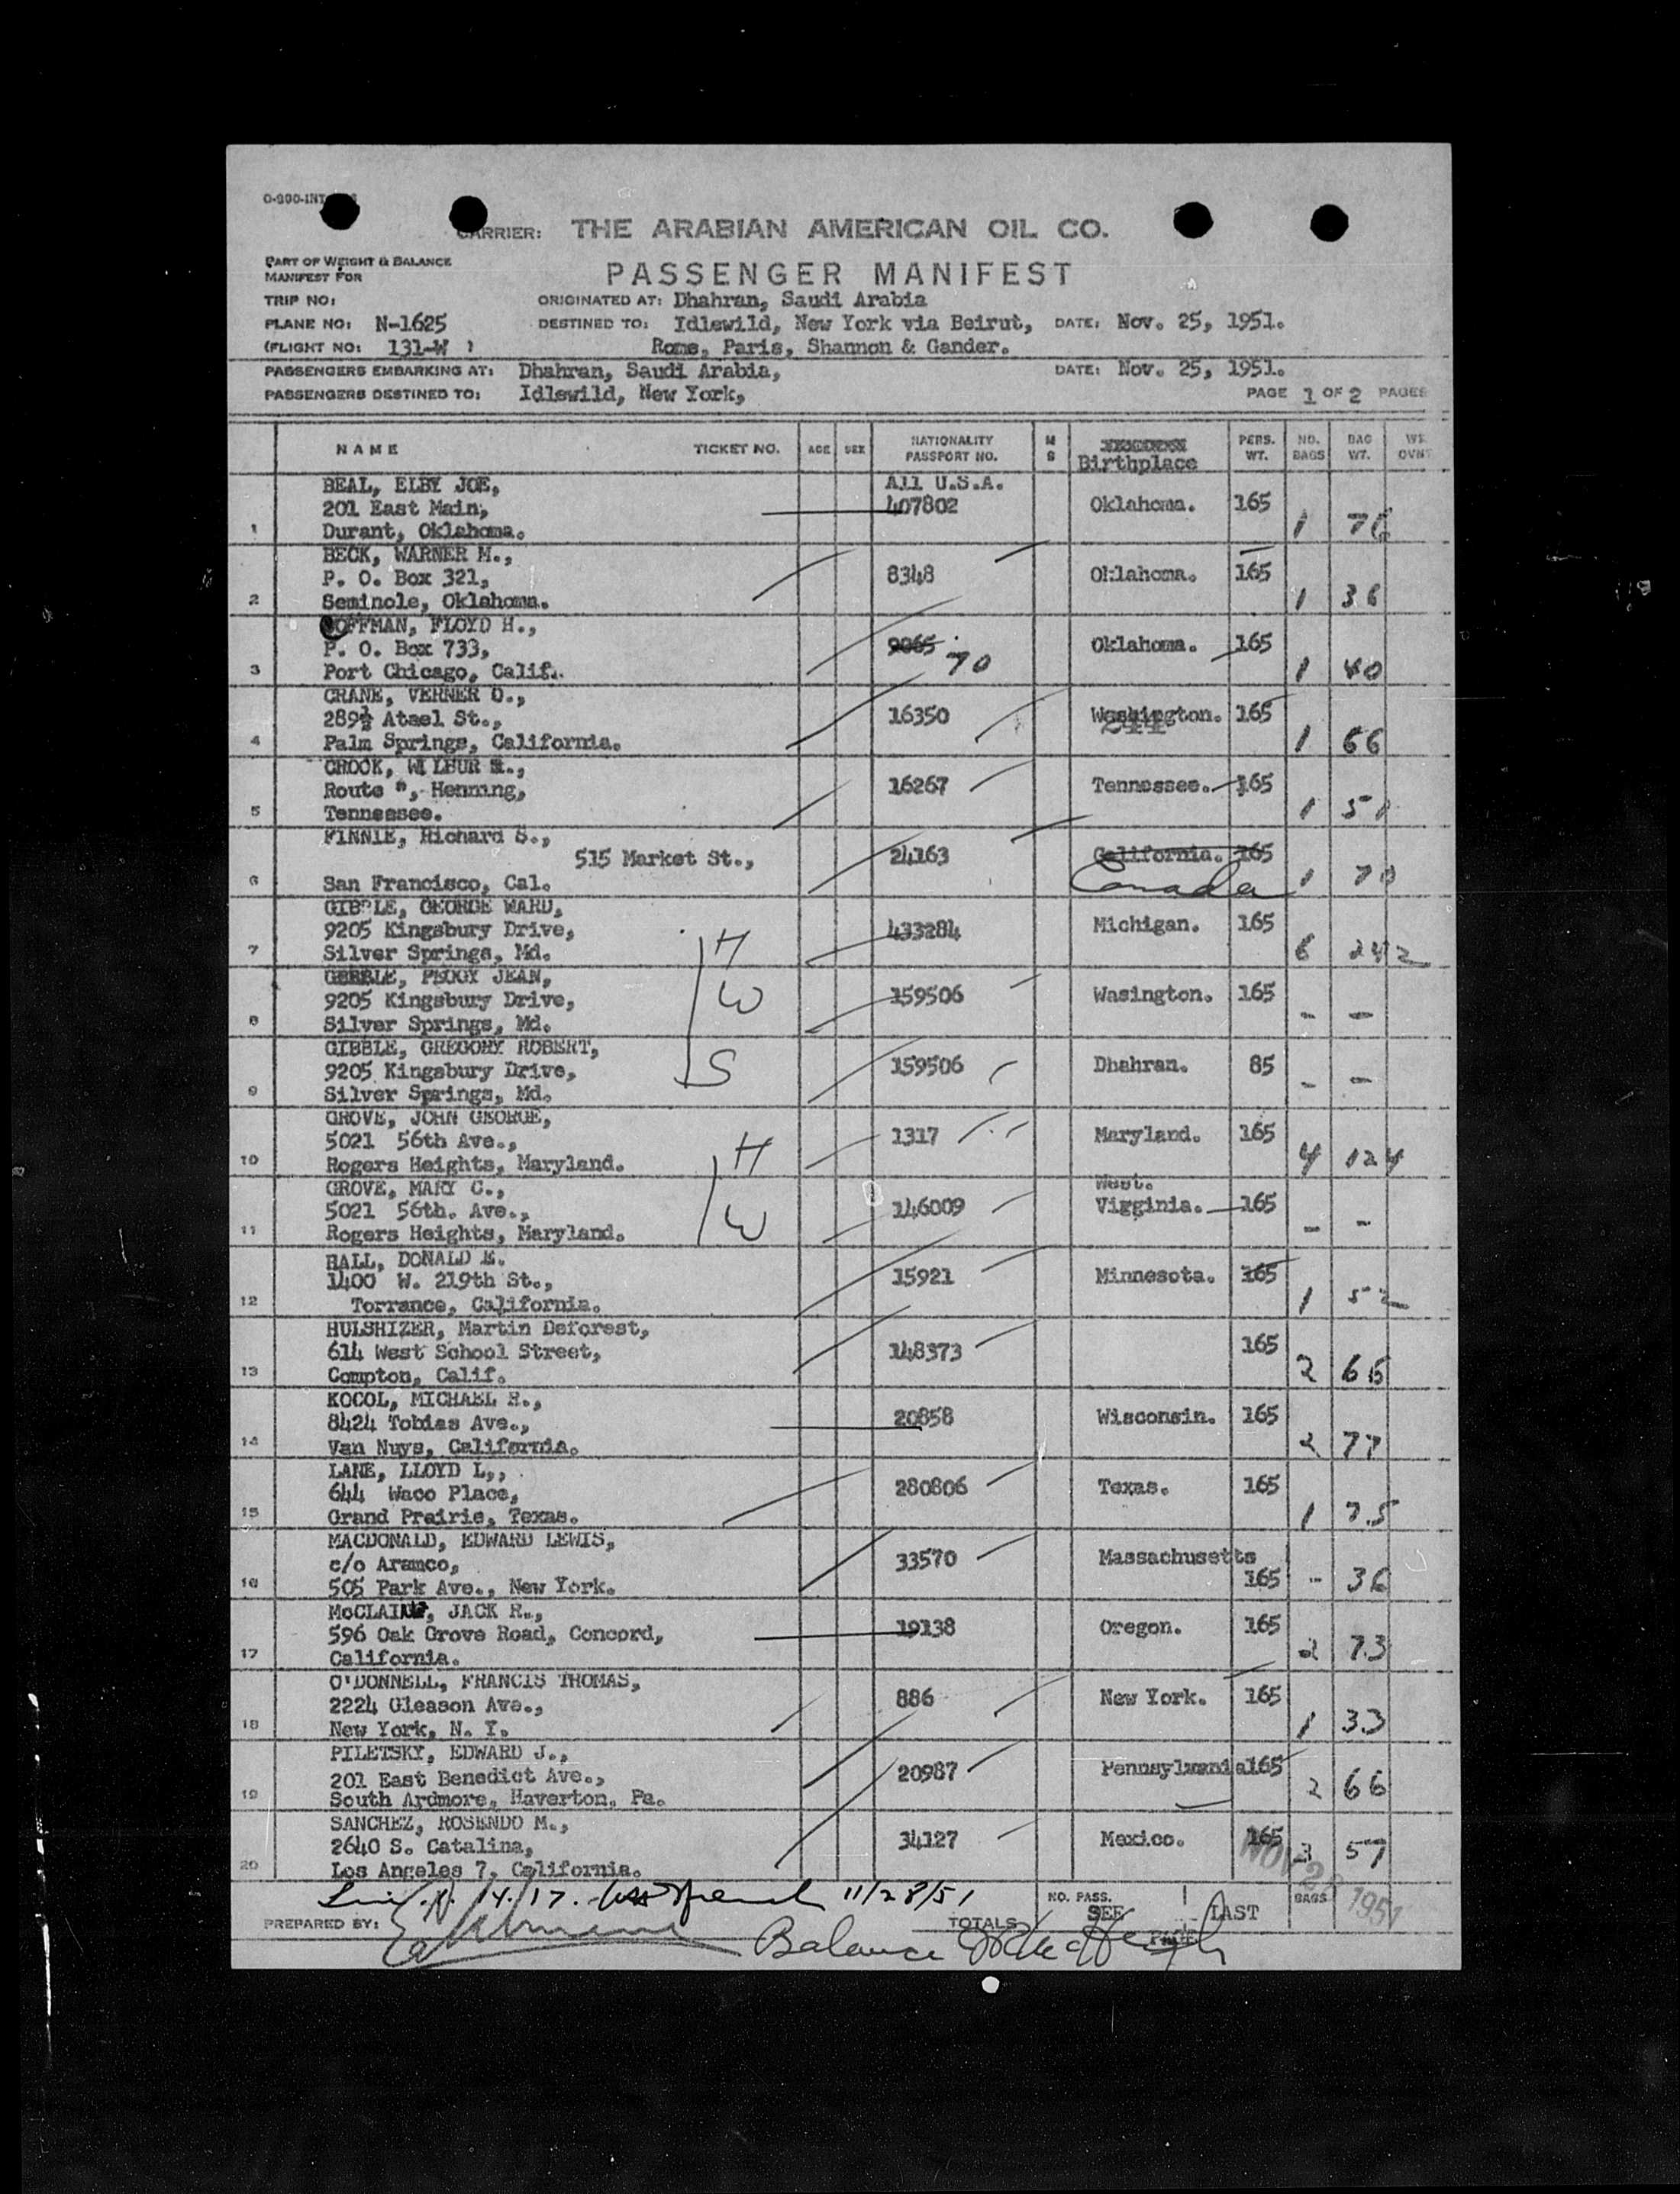 O-900-INT
CARRIER: THE ARABIAN AMERICAN OIL CO.
PART OF WEIGHT & BALANCE
MANIFEST FOR
PASSENGER MANIFEST
TRIP NO: ORIGINATED AT: Dhahran, Saudi Arabia
PLANE NO: N-1625 DESTINED TO: Idlewild, New York via Beirut, DATE: Nov. 25, 1951.
(FLIGHT NO: 131-W ) Rome, Paris, Shannon & Gander.
PASSENGERS EMBARKING AT: Dhahran, Saudi Arabia, DATE: Nov. 25, 1951.
PASSENGERS DESTINED TO: Idlewild, New York, PAGE 1 OF 2 PAGES
NAME TICKET NO. AGE SEX NATIONALITY PASSPORT NO. M S Birthplace PERS. WT. NO. BAGS BAG WT. WT. OVNT
BEAL, ELBY JOE, All U.S.A.
201 East Main, 407802 Oklahoma. 165
1 Durant, Oklahoma. 1 76
BECK, WARNER M.,
P. O. Box 321, 8348 Oklahoma. 165
2 Seminole, Oklahoma. 1 36
OFFMAN, FLOYD H.,
P. O. Box 733, 9065 70 Oklahoma. 165
3 Port Chicago, Calif. 1 40
CRANE, VERNER O.,
289½ Atael St., 16350 Washington. 165
4 Palm Springs, California. 1 66
CROOK, WILBUR
Route ", Henning, 16267 Tennessee. 165
5 Tennessee. 1 51
FINNIE, Richard S.,
515 Market St., 24163 California. 165
6 San Francisco, Cal. Canada 1 70
GIBBLE, GEORGE WARD,
9205 Kingsbury Drive, 433284 Michigan. 165
7 Silver Springs, Md. H 6 242
GIBBLE, PEGGY JEAN,
9205 Kingsbury Drive, W 159506 Wasington. 165
8 Silver Springs, Md. - -
GIBBLE, GREGORY ROBERT,
9205 Kingsbury Drive, S 159506 Dhahran. 85
9 Silver Springs, Md. - -
GROVE, JOHN GEORGE,
5021 56th Ave., 1317 Maryland. 165
10 Rogers Heights, Maryland. H 4 124
GROVE, MARY C., West.
5021 56th. Ave., 146009 Vigginia. 165
11 Rogers Heights, Maryland. W - -
HALL, DONALD E.
1400 W. 219th St., 15921 Minnesota. 165
12 Torrance, California. 1 52
HULSHIZER, Martin Deforest,
614 West School Street, 148373 165
13 Compton, Calif. 2 66
KOCOL, MICHAEL R.,
8424 Tobias Ave., 20858 Wisconsin. 165
14 Van Nuys, California. 2 77
LANE, LLOYD L.,
644 Waco Place, 280806 Texas. 165
15 Grand Prairie, Texas. 1 75
MACDONALD, EDWARD LEWIS,
c/o Aramco, 33570 Massachusetts
16 505 Park Ave., New York. 165 - 36
McCLAIN, JACK R.,
596 Oak Grove Road, Concord, 19138 Oregon. 165
17 California. 2 73
O'DONNELL, FRANCIS THOMAS,
2224 Gleason Ave., 886 New York. 165
18 New York, N. Y. 1 33
PILETSKY, EDWARD J.,
201 East Benedict Ave., 20987 Pennsylvania 165
19 South Ardmore, Haverton, Pa. 2 66
SANCHEZ, ROSENDO M.,
2640 S. Catalina, 34127 Mexico. 165
20 Los Angeles 7, California. 57
11/28/51 NO. PASS. BAGS NOV 1951
PREPARED BY: TOTALS SEE LAST
Balance PAGE